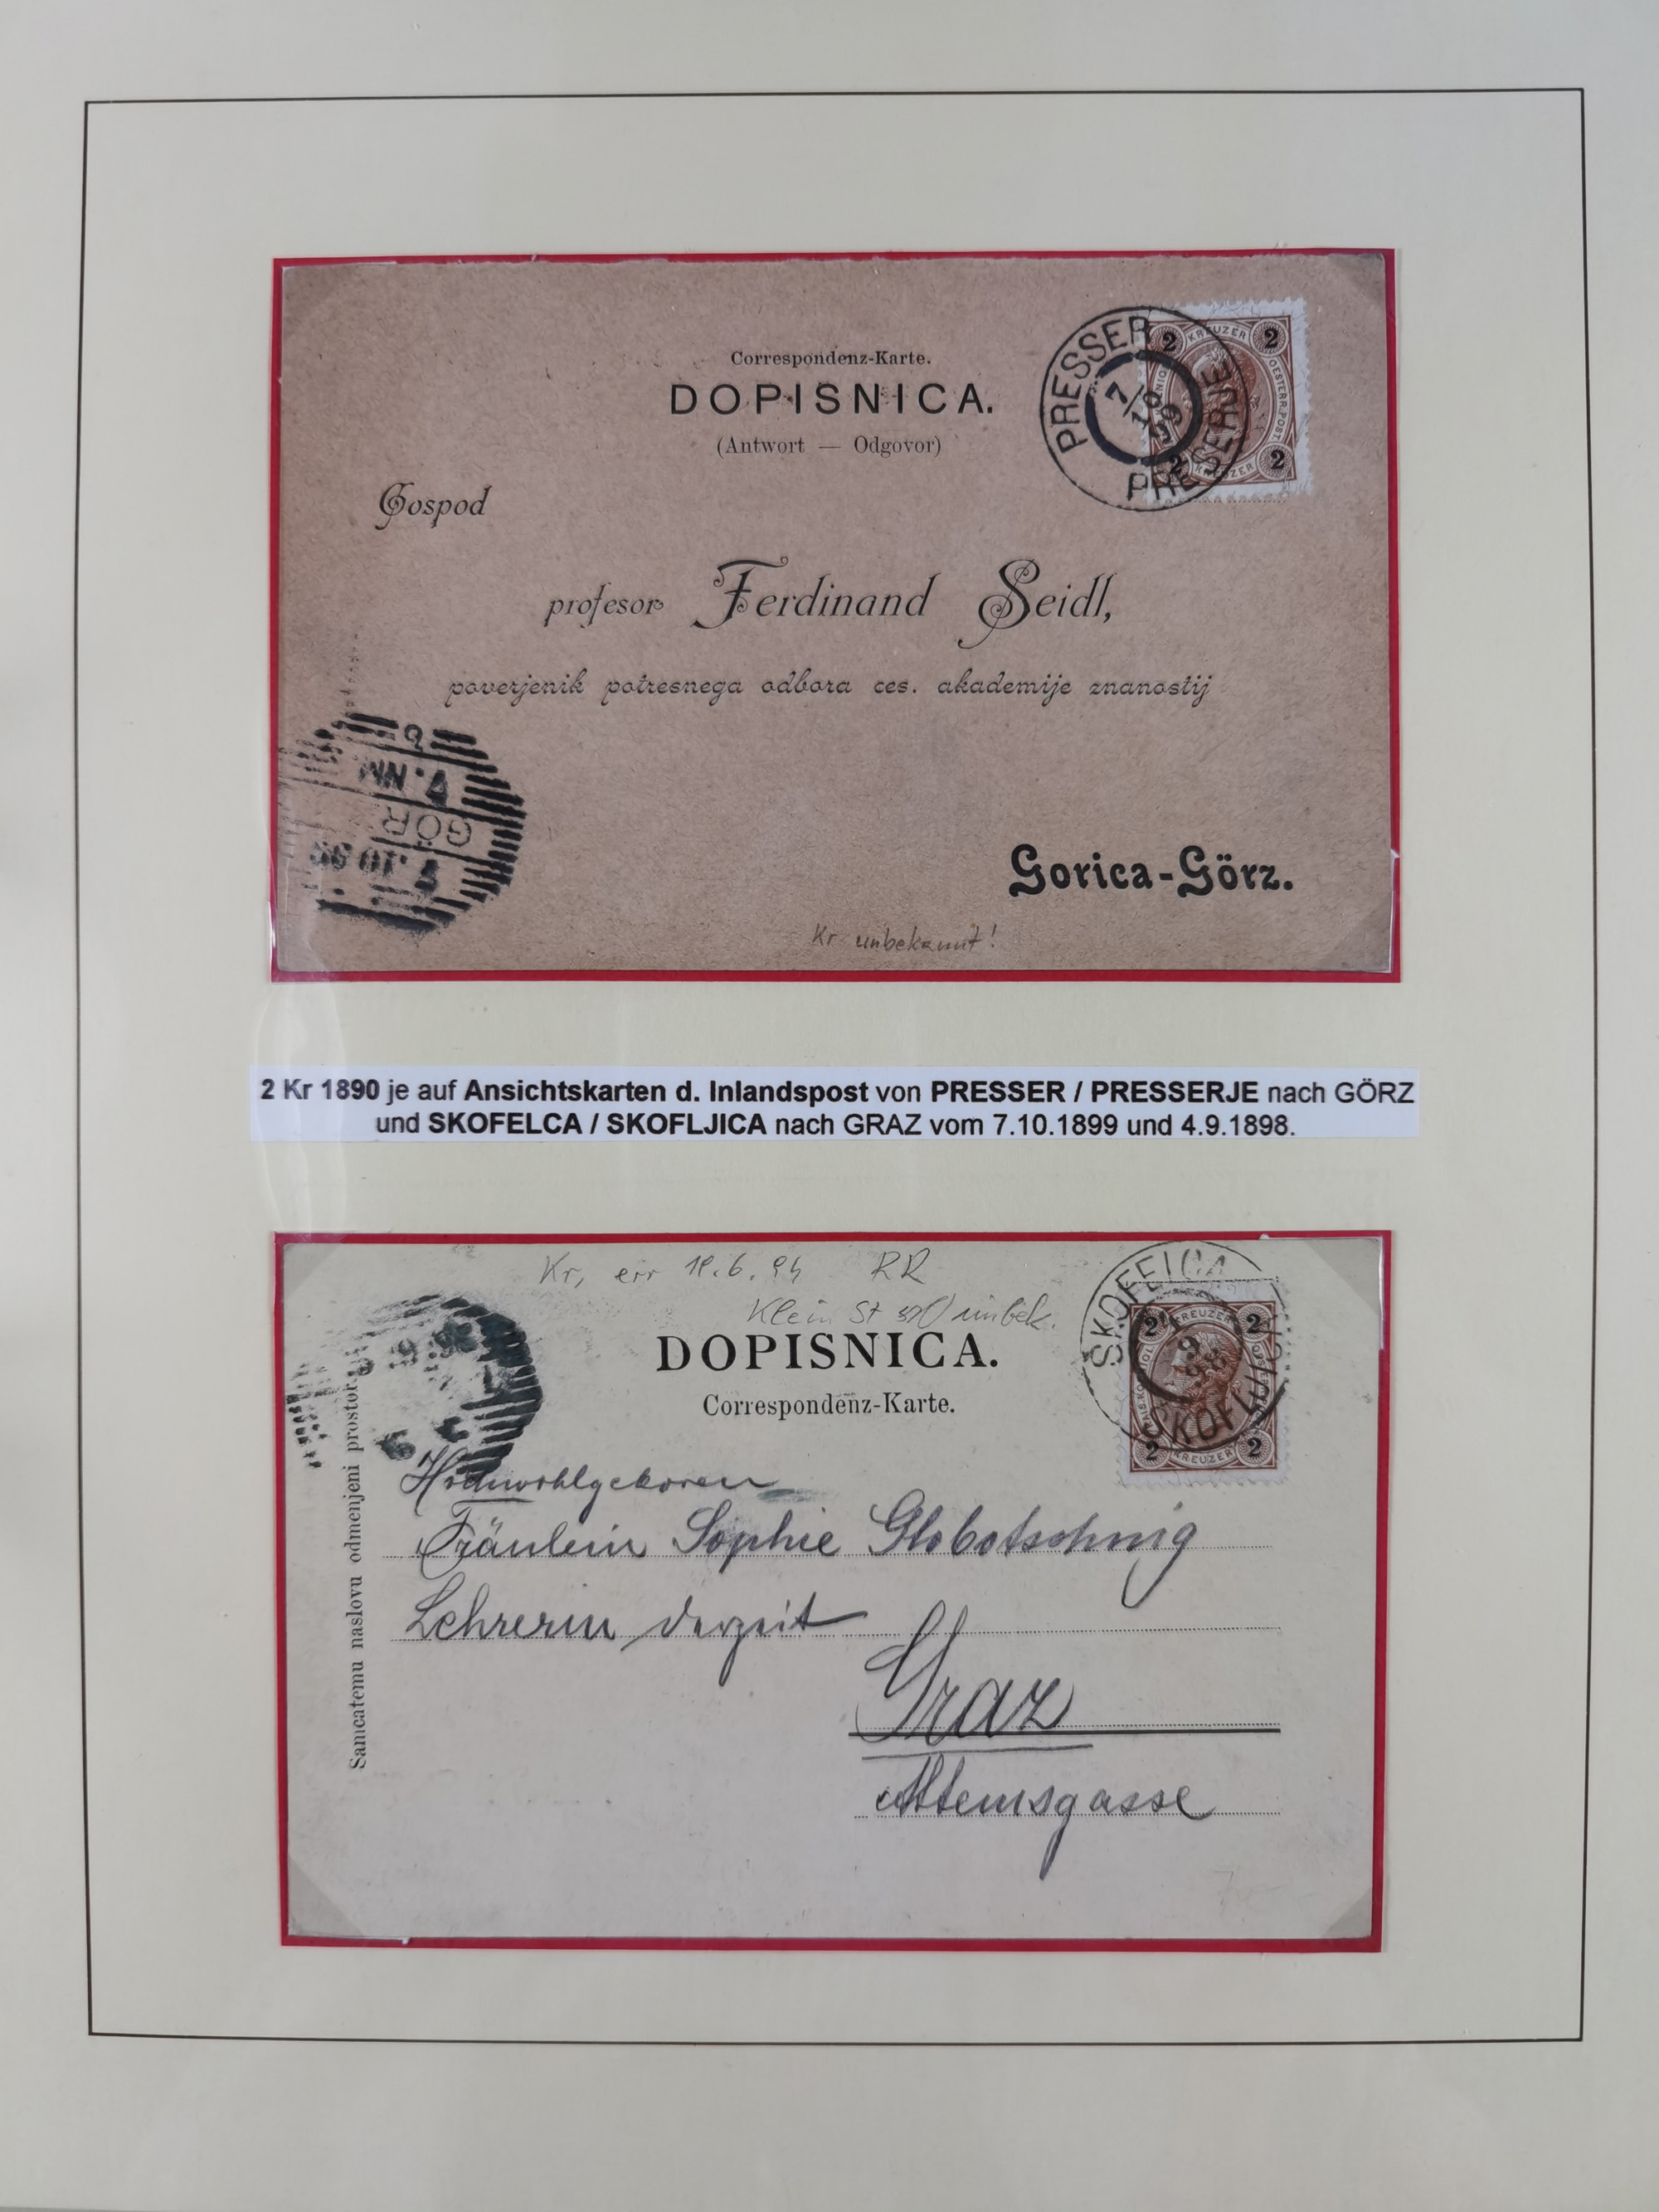 Correspondenz-Karte.
DOPISNICA.
(Antwort — Odgovor)
PRESSER
PRESERJE
7/10 99
2 KREUZER 2
OESTERR. POST.
2 KREUZER 2
Gospod
profesor Ferdinand Seidl,
poverjenik potresnega odbora ces. akademije znanostij
GÖR
7.10.99
Gorica-Görz.
Kr unbekannt!
2 Kr 1890 je auf Ansichtskarten d. Inlandspost von PRESSER / PRESSERJE nach GÖRZ
und SKOFELCA / SKOFLJICA nach GRAZ vom 7.10.1899 und 4.9.1898.
Kr, err 18.6.94 RR
Klein St unbek.
DOPISNICA.
Correspondenz-Karte.
SKOFELCA
SKOFLJICA
2 KREUZER 2
2 KREUZER 2
Samcatemu naslovu odmenjeni prostor.
Hochwohlgeboren
Fräulein Sophie Globotschnig
Lehrerin derzeit
Graz
Attemsgasse